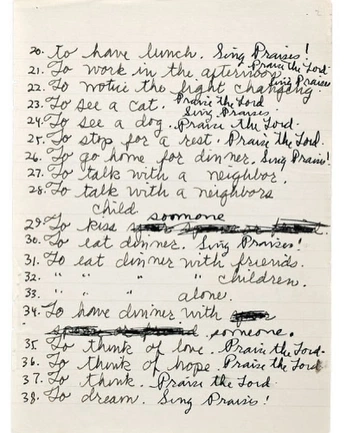 20. To have lunch. Sing Praises!
21. To work in the afternoon. Praise the Lord
22. To notice the light changing. Sing Praises
23. To see a cat. Praise the Lord
Sing Praises
24. To see a dog. Praise the Lord.
25. To stop for a rest. Praise the Lord.
26. To go home for dinner. Sing Praises!
27. To talk with a neighbor.
28. To talk with a neighbors
child
29. To kiss someone
30. To eat dinner. Sing Praises!
31. To eat dinner with friends.
32. " " " " children.
33. " " " alone.
34. To have dinner with
someone.
35. To think of love. Praise the Lord.
36. To think of hope. Praise the Lord
37. To think. Praise the Lord
38. To dream. Sing Praise!